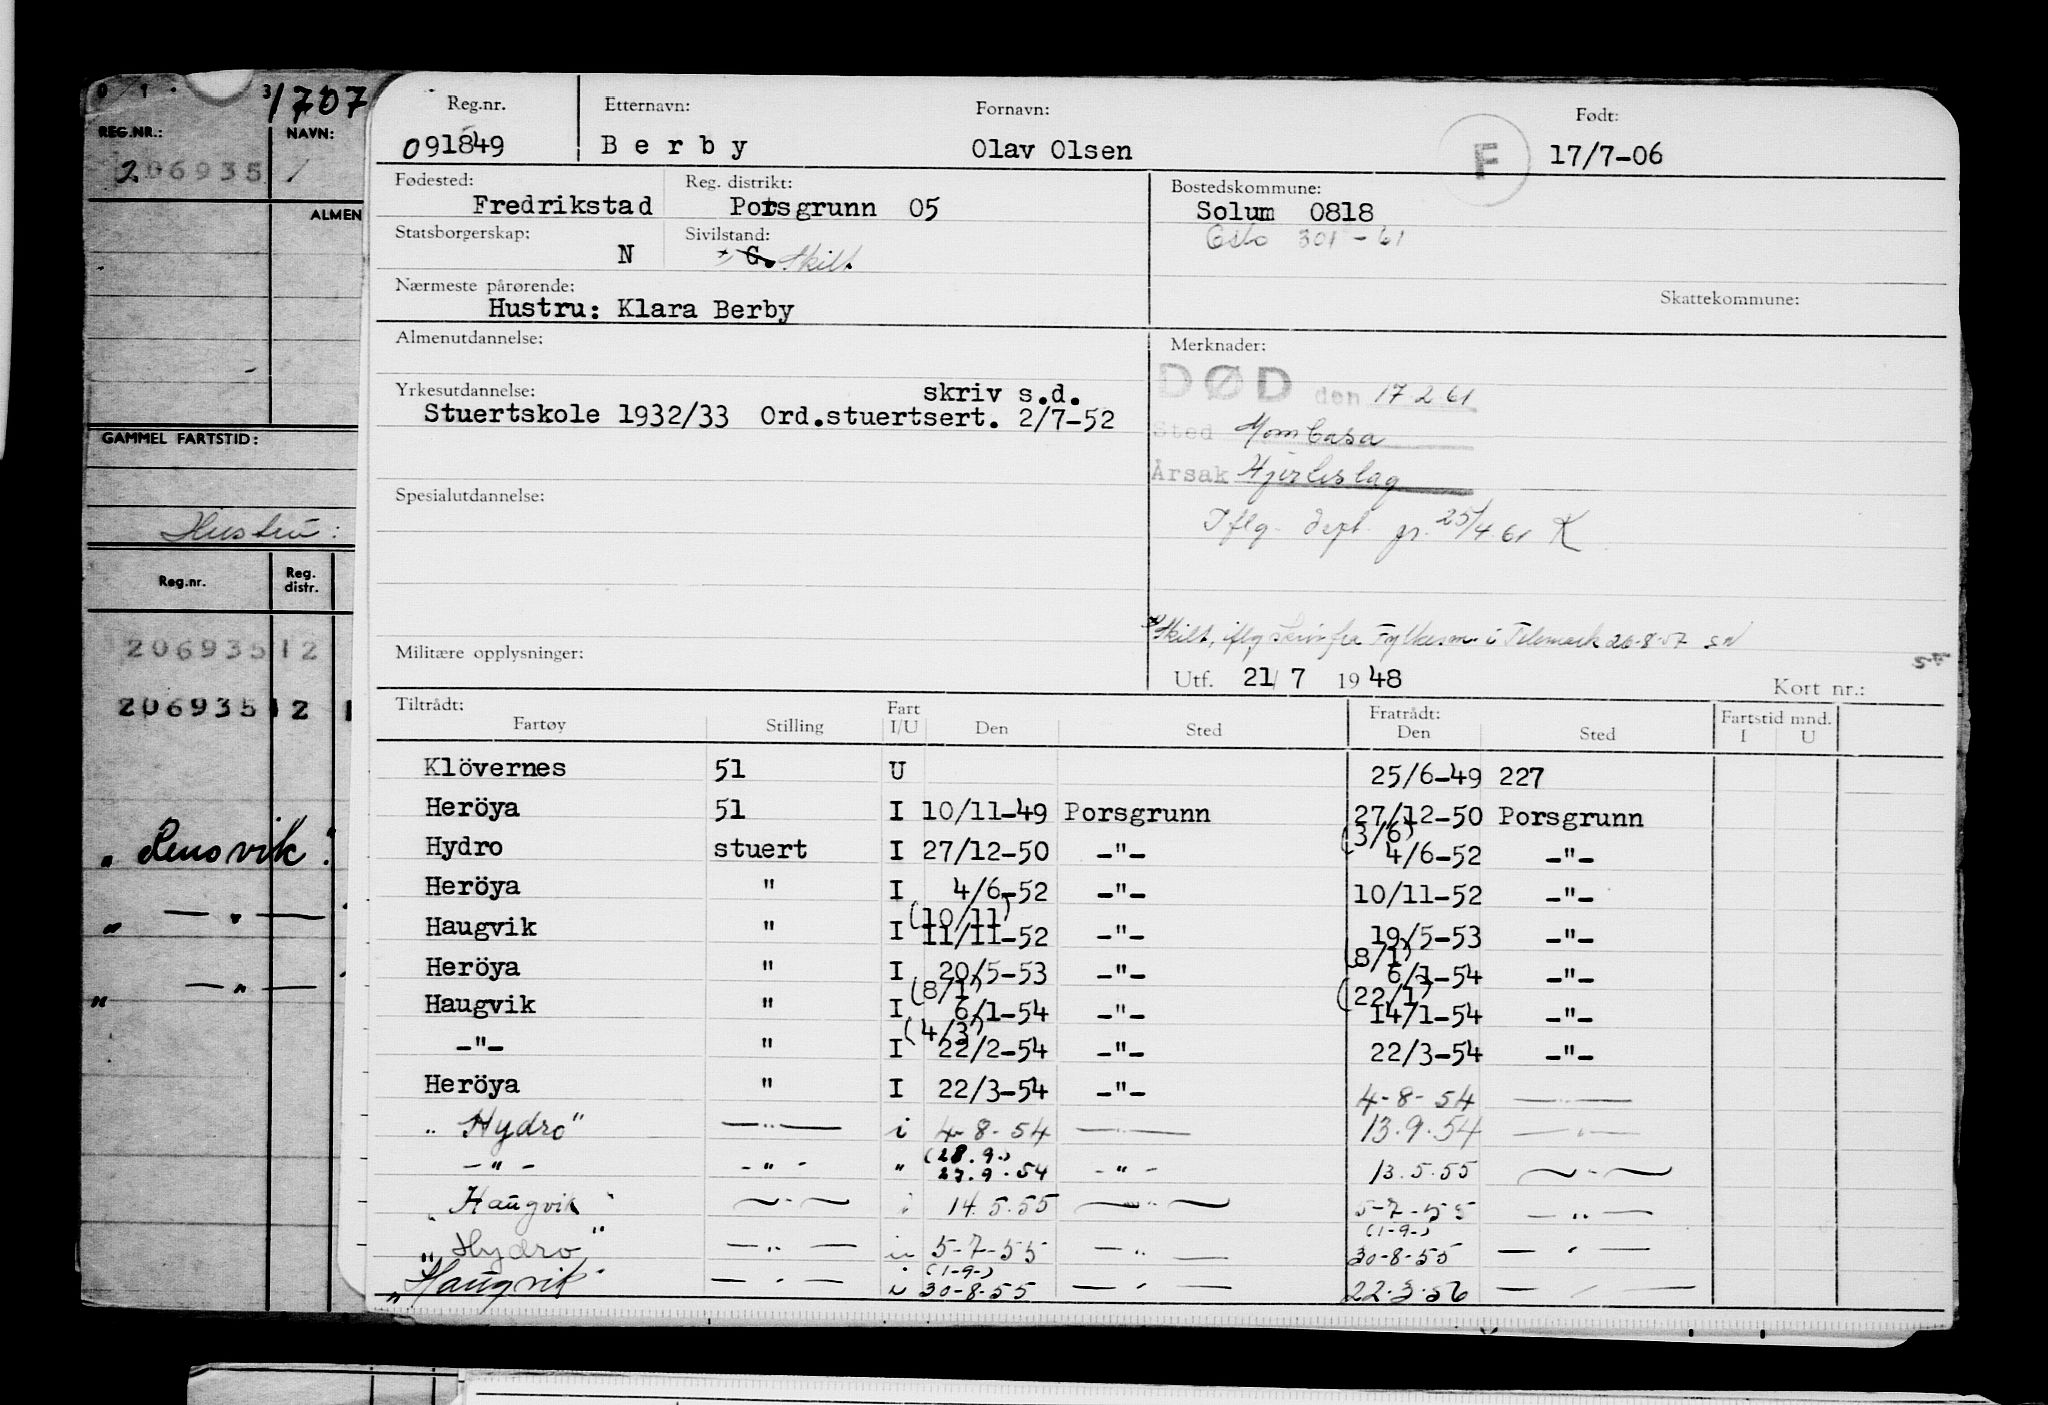 1707
REG.NR.:	NAVN:
206935
ALMEN
GAMMEL FARTSTID:
Hustru:
Reg.nr.	Reg. distr.
206935 12
206935 12 1
"Lenovik"
" — " —
" — " —
Reg.nr.	Etternavn:	Fornavn:	Født:
091849	Berby	Olav Olsen	F	17/7-06
Fødested:	Reg. distrikt:	Bostedskommune:
Fredrikstad	Porsgrunn 05	Solum 0818
Statsborgerskap:	Sivilstand:	Oslo 301-61
N	G. Skilt.
Nærmeste pårørende:	Skattekommune:
Hustru: Klara Berby
Almenutdannelse:	Merknader:
DØD den 17.2.61
Yrkesutdannelse:	skriv s.d.
Stuertskole 1932/33 Ord.stuertsert. 2/7-52
Sted Mombasa
Årsak Hjerteslag
Spesialutdannelse:
Iflg. dept. gr. 25/4.61 K
Skilt, iflg skriv fra Fylkesm. i Telemark 26-8-57 SN
Militære opplysninger:
Utf. 21/7 1948	Kort nr.:
Tiltrådt:	Fart	Fratrådt:	Fartstid mnd.
Fartøy	Stilling	I/U	Den	Sted	Den	Sted	I	U
Klövernes	51	U	25/6-49	227
Heröya	51	I	10/11-49	Porsgrunn	27/12-50	Porsgrunn
Hydro	stuert	I	27/12-50	-"-	(3/6) 4/6-52	-"-
Heröya	"	I	4/6-52	-"-	10/11-52	-"-
Haugvik	"	I	(10/11) 11/11-52	-"-	19/5-53	-"-
Heröya	"	I	20/5-53	-"-	(8/1) 6/1-54	-"-
Haugvik	"	I	(8/1) 6/1-54	-"-	(22/1) 14/1-54	-"-
-"-	"	I	(4/3) 22/2-54	-"-	22/3-54	-"-
Heröya	"	I	22/3-54	-"-	4-8-54	—"—
"Hydro"	—"—	i	4-8-54	—"—	13.9.54	—"—
-"-	-"-	"	(28.9.) 27.9.54	-"-	13.5.55	—"—
"Haugvik"	—"—	i	14.5.55	—"—	5-7-55	—"—
"Hydro"	—"—	i	5-7-55	—"—	(1-9-) 30-8-55	—"—
"Haugvik"	—"—	i	(1-9-) 30-8-55	—"—	22.3.56	—"—